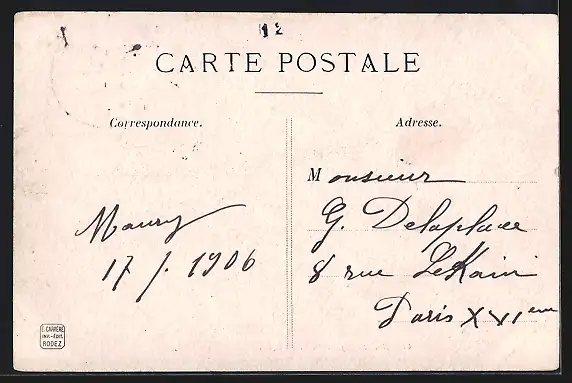 12
CARTE POSTALE
Correspondance.
Adresse.
Monsieur
G. Delaplace
8 rue LeKain
Paris XVIeme
Maury
17 /. 1906
E. CARRÈRE
IMP.-EDIT.
RODEZ